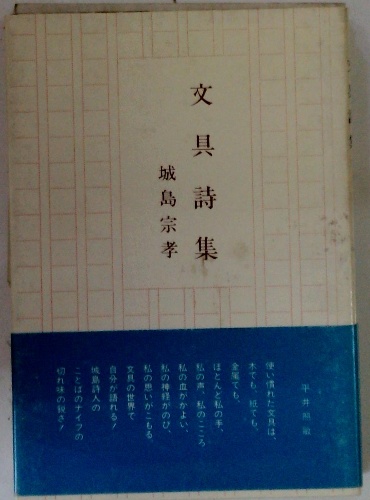 文具詩集
城島宗孝
平井照敏
使い慣れた文具は、
木でも、紙でも、
金属でも、
ほとんど私の手、
私の声、私のこころ
私の血がかよい、
私の神経がのび、
私の思いがこもる。
文具の世界で
自分が語れる！
城島詩人の
ことばのナイフの
切れ味の鋭さ！